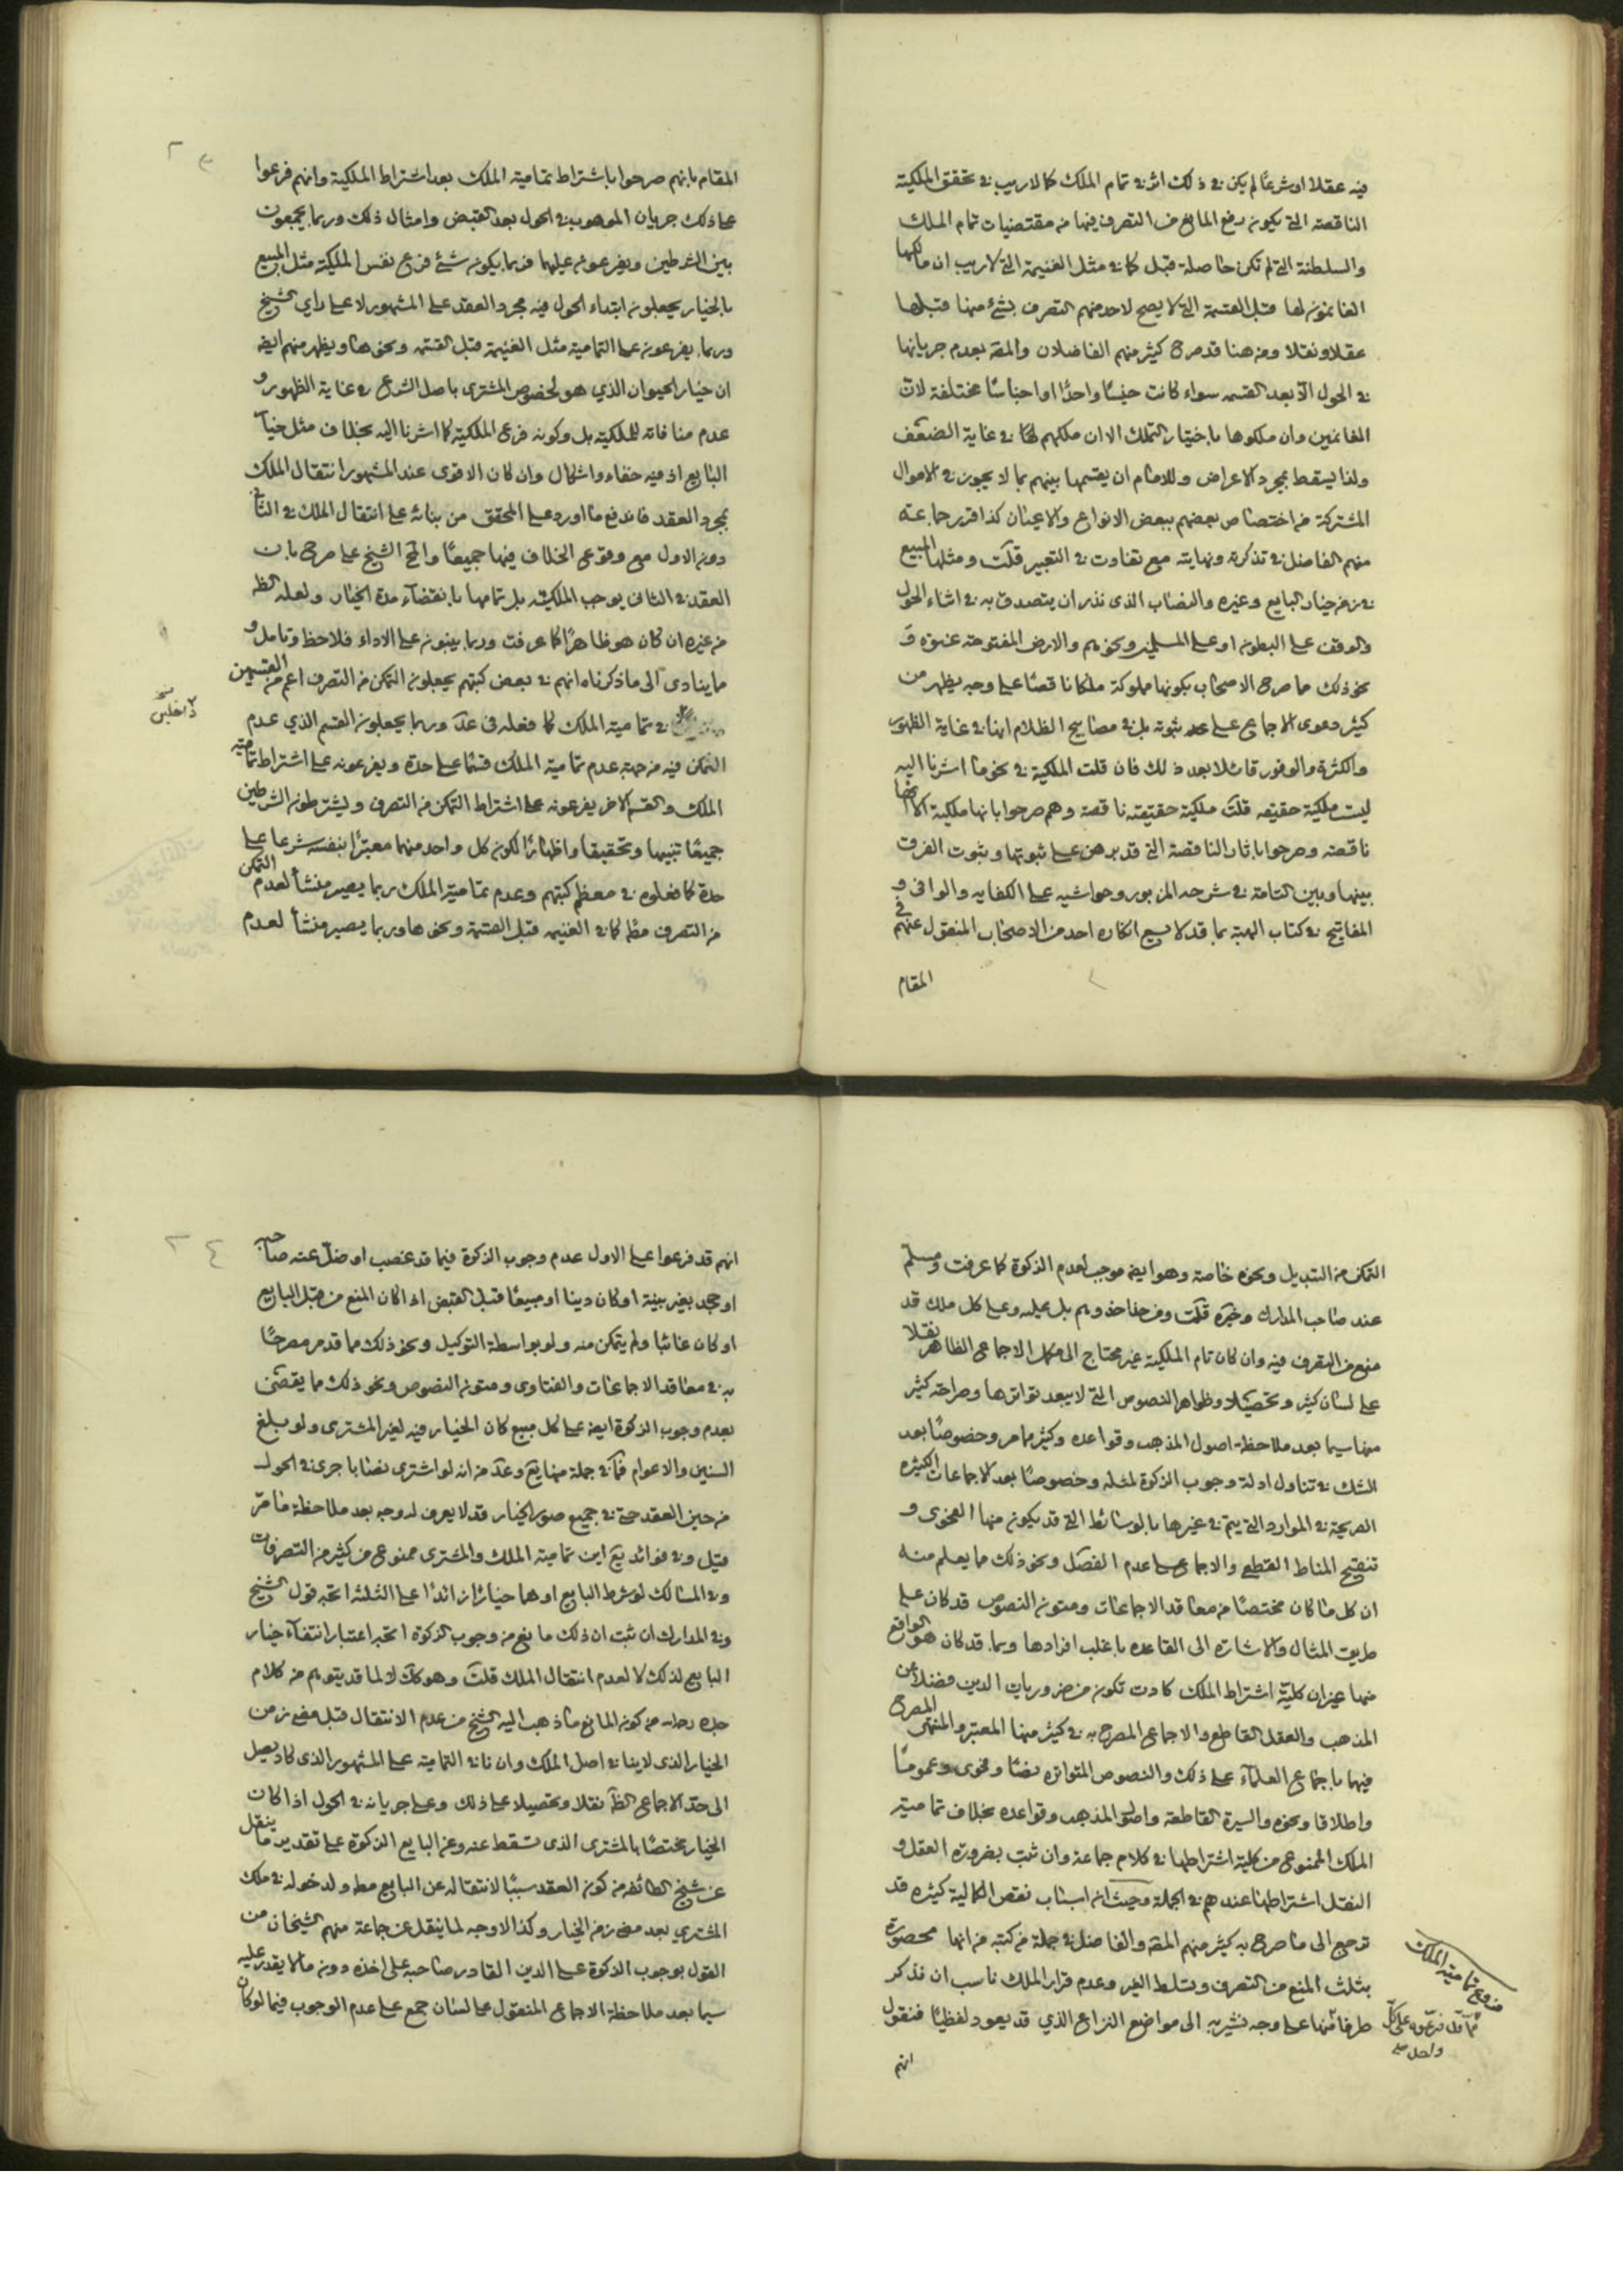 فيه عقلا او شرعًا لم يكن في ذلك اثر في تمام الملك كما لا ريب في تحقق الملكية
الناقصة التي يكون رفع المانع من التصرف فيها من مقتضيات تمام الملك
والسلطنة التي لم تكن حاصلة قبل كما في مثل الغنيمة التي لا ريب ان مالكها
الغانمون لها قبل القسمة التي لا يصح لاحد منهم التصرف بشئ منها قبلها
عقلا ونقلا ومن هنا قد صرح كثير منهم الفاضلان والمقه بعدم جريانها
في الحول الا بعد القسمه سواء كانت جنسًا واحدًا او اجناسًا مختلفة لان
الغانمين وان ملكوها باختيار التملك الا ان ملكهم لها في غاية الضعف
ولذا يسقط بمجرد الاعراض وللامام ان يقسمها بينهم بما لا يجوز في الاموال
المشتركة من اختصاص بعضهم ببعض الانواع والاعيان كذا قرر جماعته
منهم الفاضل في تذكرته ونهايته مع تفاوت في التعبير قلت ومثلها المبيع
في زمن خيار البايع وغيره والنصاب الذى نذر ان يتصدق به في اثناء الحول
والوقف على البطون او على المسلمين ونحوهم والارض المفتوحة عنوة و
نحو ذلك مما صرح الاصحاب بكونها مملوكة ملكا ناقصًا على وجه يظهر من
كثير دعوى الاجماع على عدم ثبوته بل في مصابيح الظلام انها في غاية الظهور
والكثرة والوفور قائلا بعد ذلك فان قلت الملكية في نحو ما اشرنا اليه
ليست ملكية حقيقه قلت ملكية حقيقته ناقصة وهم صرحوا بانها ملكية الا انها
ناقصته وصرحوا باثار الناقصة التي قد برهن على ثبوتها وثبوت الفرق
بينها وبين التامة في شرحه المزبور وحواشيه على الكفايه والوافى و
المفاتيح في كتاب الهبة بما قد لا يسع انكاره احد من الاصحاب المنقول عنهم في
المقام
المقام بانهم صرحوا باشتراط تمامية الملك بعد اشتراط الملكية وانهم فرعوا
على ذلك جريان الموهوب في الحول بعد القبض وامثال ذلك وربما يجمعون
بين الشرطين ويفرعون عليهما فربما يكون شئ فرع نفس الملكية مثل المبيع
بالخيار يجعلون ابتداء الحول فيه مجرد العقد على المشهور لا على راي الشيخ
وربما يفرعون على التمامية مثل الغنيمة قبل القسمة ونحوها ويظهر منهم ايضا
ان خيار الحيوان الذي هو لخصوص المشترى باصل الشرع في غاية الظهور و
عدم منافاته للملكية بل وكونه فرع الملكية كما اشرنا اليه بخلاف مثل خيار
البايع اذ فيه خفاء واشكال وان كان الاقوى عند المشهور انتقال الملك
بمجرد العقد فاندفع ما اورد على المحقق من بنائه على انتقال الملك في الثاني
دون الاول مع وقوع الخلاف فيهما جميعًا والحق الشيخ على صرح بان
العقد في الثاني يوجب الملكية بل تمامها بانقضاء مدة الخيار ولعله الظ
من غيره ان كان هو ظاهرًا كما عرفت وربما يبنون على الاداء فلاحظ وتامل و
ما ينادى الى ما ذكرناه انهم في بعض كتبهم يجعلون التمكن من التصرف اعم من القسمين
في تمامية الملك كما فعله في عد وربما يجعلون القسم الذي عدم
التمكن فيه من جهة عدم تمامية الملك قسمًا على حدة ويفرعونه على اشتراط تمامية
الملك والقسم الاخر يفرعونه على اشتراط التمكن من التصرف ويشترطون الشرطين
جميعًا تنبيها وتحقيقا واظهارًا لكون كل واحد منهما معتبرًا بنفسه شرعا على
حدة كما فعلوه في معظم كتبهم وعدم تمامية الملك ربما يصير منشأ لعدم التمكن
من التصرف مطلقا كما في الغنيمه قبل القسمة ونحوها وربما يصير منشأ لعدم
داخلين
التمكن من التبديل ونحوه خاصة وهو ايضا موجب لعدم الزكوة كما عرفت ومسلم
عند صاحب المدارك وغيره قلت ومن حذا حذوهم بل عليه وعلى كل ملك قد
منع من التصرف فيه وان كان تام الملكية غير محتاج الى مكمل الاجماع الظاهر نقلا
على لسان كثير وتحصيلا وظواهر النصوص التي لا يبعد تواترها وصراحة كثير
منها سيما بعد ملاحظة اصول المذهب وقواعده وكثير مما مر وخصوصًا بعد
الشك في تناول ادلة وجوب الزكوة لمثله وخصوصًا بعد الاجماعات الكثيره
الصريحة في الموارد التي يتم في غيرها بالوسائط التي قد يكون منها الفحوى و
تنقيح المناط القطعي والاجماع على عدم الفصل ونحو ذلك مما يعلم منه
ان كل ما كان مختصًا من معاقد الاجماعات ومتون النصوص قد كان على
طريق المثال والاشارة الى القاعده باغلب افرادها وبما قد كان هو الواقع
منها غير ان كلية اشتراط الملك كادت تكون من ضروريات الدين فضلا عن
المذهب والعقل القاطع والاجماع المصرح به في كثير منها المعتبر والمنتهى المصرح
فيهما باجماع العلماء على ذلك والنصوص المتواتره نصًا وفحوى وعمومًا
واطلاقا ونحوه والسيرة القاطعة واصول المذهب وقواعده بخلاف تمامية
الملك الممنوع من كلية اشتراطها في كلام جماعة وان ثبت بضرورة العقل و
النقل اشتراطها عندهم في الجملة وحيث ان اسباب نقص المالية كثيره قد
ترجع الى ما صرح به كثير منهم المقه والفاضل في جملة من كتبه من انها محصورة
بثلث المنع من التصرف وتسلط الغير وعدم قرار الملك ناسب ان نذكر
طرفا منها على وجه نشير به الى مواضع النزاع الذي قد يعود لفظيًا فنقول
فروع تمامية الملك
انهم
انهم قد فرعوا على الاول عدم وجوب الزكوة فيما قد غصب او ضل عنه صاحبه
او جحد بغير بينة او كان دينا او مبيعًا قبل القبض اذا كان المنع من قبل البايع
او كان غائبا ولم يتمكن منه ولو بواسطة التوكيل ونحو ذلك مما قد مر مصرحًا
به في معاقد الاجماعات والفتاوى ومتون النصوص ونحو ذلك مما يقضى
بعدم وجوب الزكوة ايضا على كل مبيع كان الخيار فيه لغير المشترى ولو بلغ
السنين والاعوام فما في جملة منها يع وعد من انه لو اشترى نصابا جرى في الحول
من حين العقد حتى في جميع صور الخيار قد لا يعرف له وجه بعد ملاحظة ما مر
قيل وفي فوائد يع اين تمامية الملك والمشترى ممنوع من كثير من التصرفات
وفي المسالك لو شرط البايع او هما خيارًا زائدًا على الثلثة اتجه قول الشيخ
وفي المدارك ان ثبت ان ذلك مانع من وجوب الزكوة اتجه اعتبار انتفاء خيار
البايع لذلك لا لعدم انتقال الملك قلت وهو كك لا لما قد يتوهم من كلام
جده رحمه الله من كون المانع ما ذهب اليه الشيخ من عدم الانتقال قبل مضي زمن
الخيار الذى لا ينافى اصل الملك وان نافى التمامية على المشهور الذى كاد يصل
الى حد الاجماع الظ نقلا وتحصيلا على ذلك وعلى جريانه في الحول اذا كان
الخيار مختصًا بالمشترى الذى تسقط عنه وعن البايع الزكوة على تقدير ما ينقل
عن شيخ الطائفه من كون العقد سببًا لانتقاله عن البايع مطلقا ولدخوله في ملك
المشتري بعد مضي زمن الخيار وكذا الاوجه لما ينقل عن جماعة منهم الشيخان من
القول بوجوب الزكوة على الدين القادر صاحبه على اخذه دون ما لا يقدر عليه
سيما بعد ملاحظة الاجماع المنقول على لسان جمع على عدم الوجوب فيما لو كان